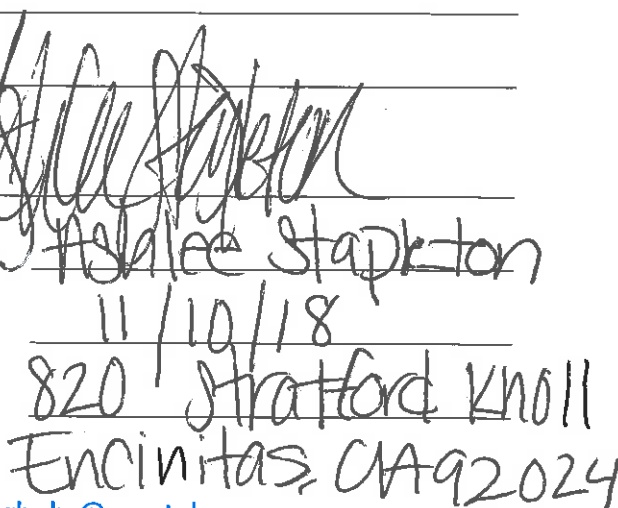 Stapleton
11/10/18
820 Stratford Knoll
Encinitas, CA 92024